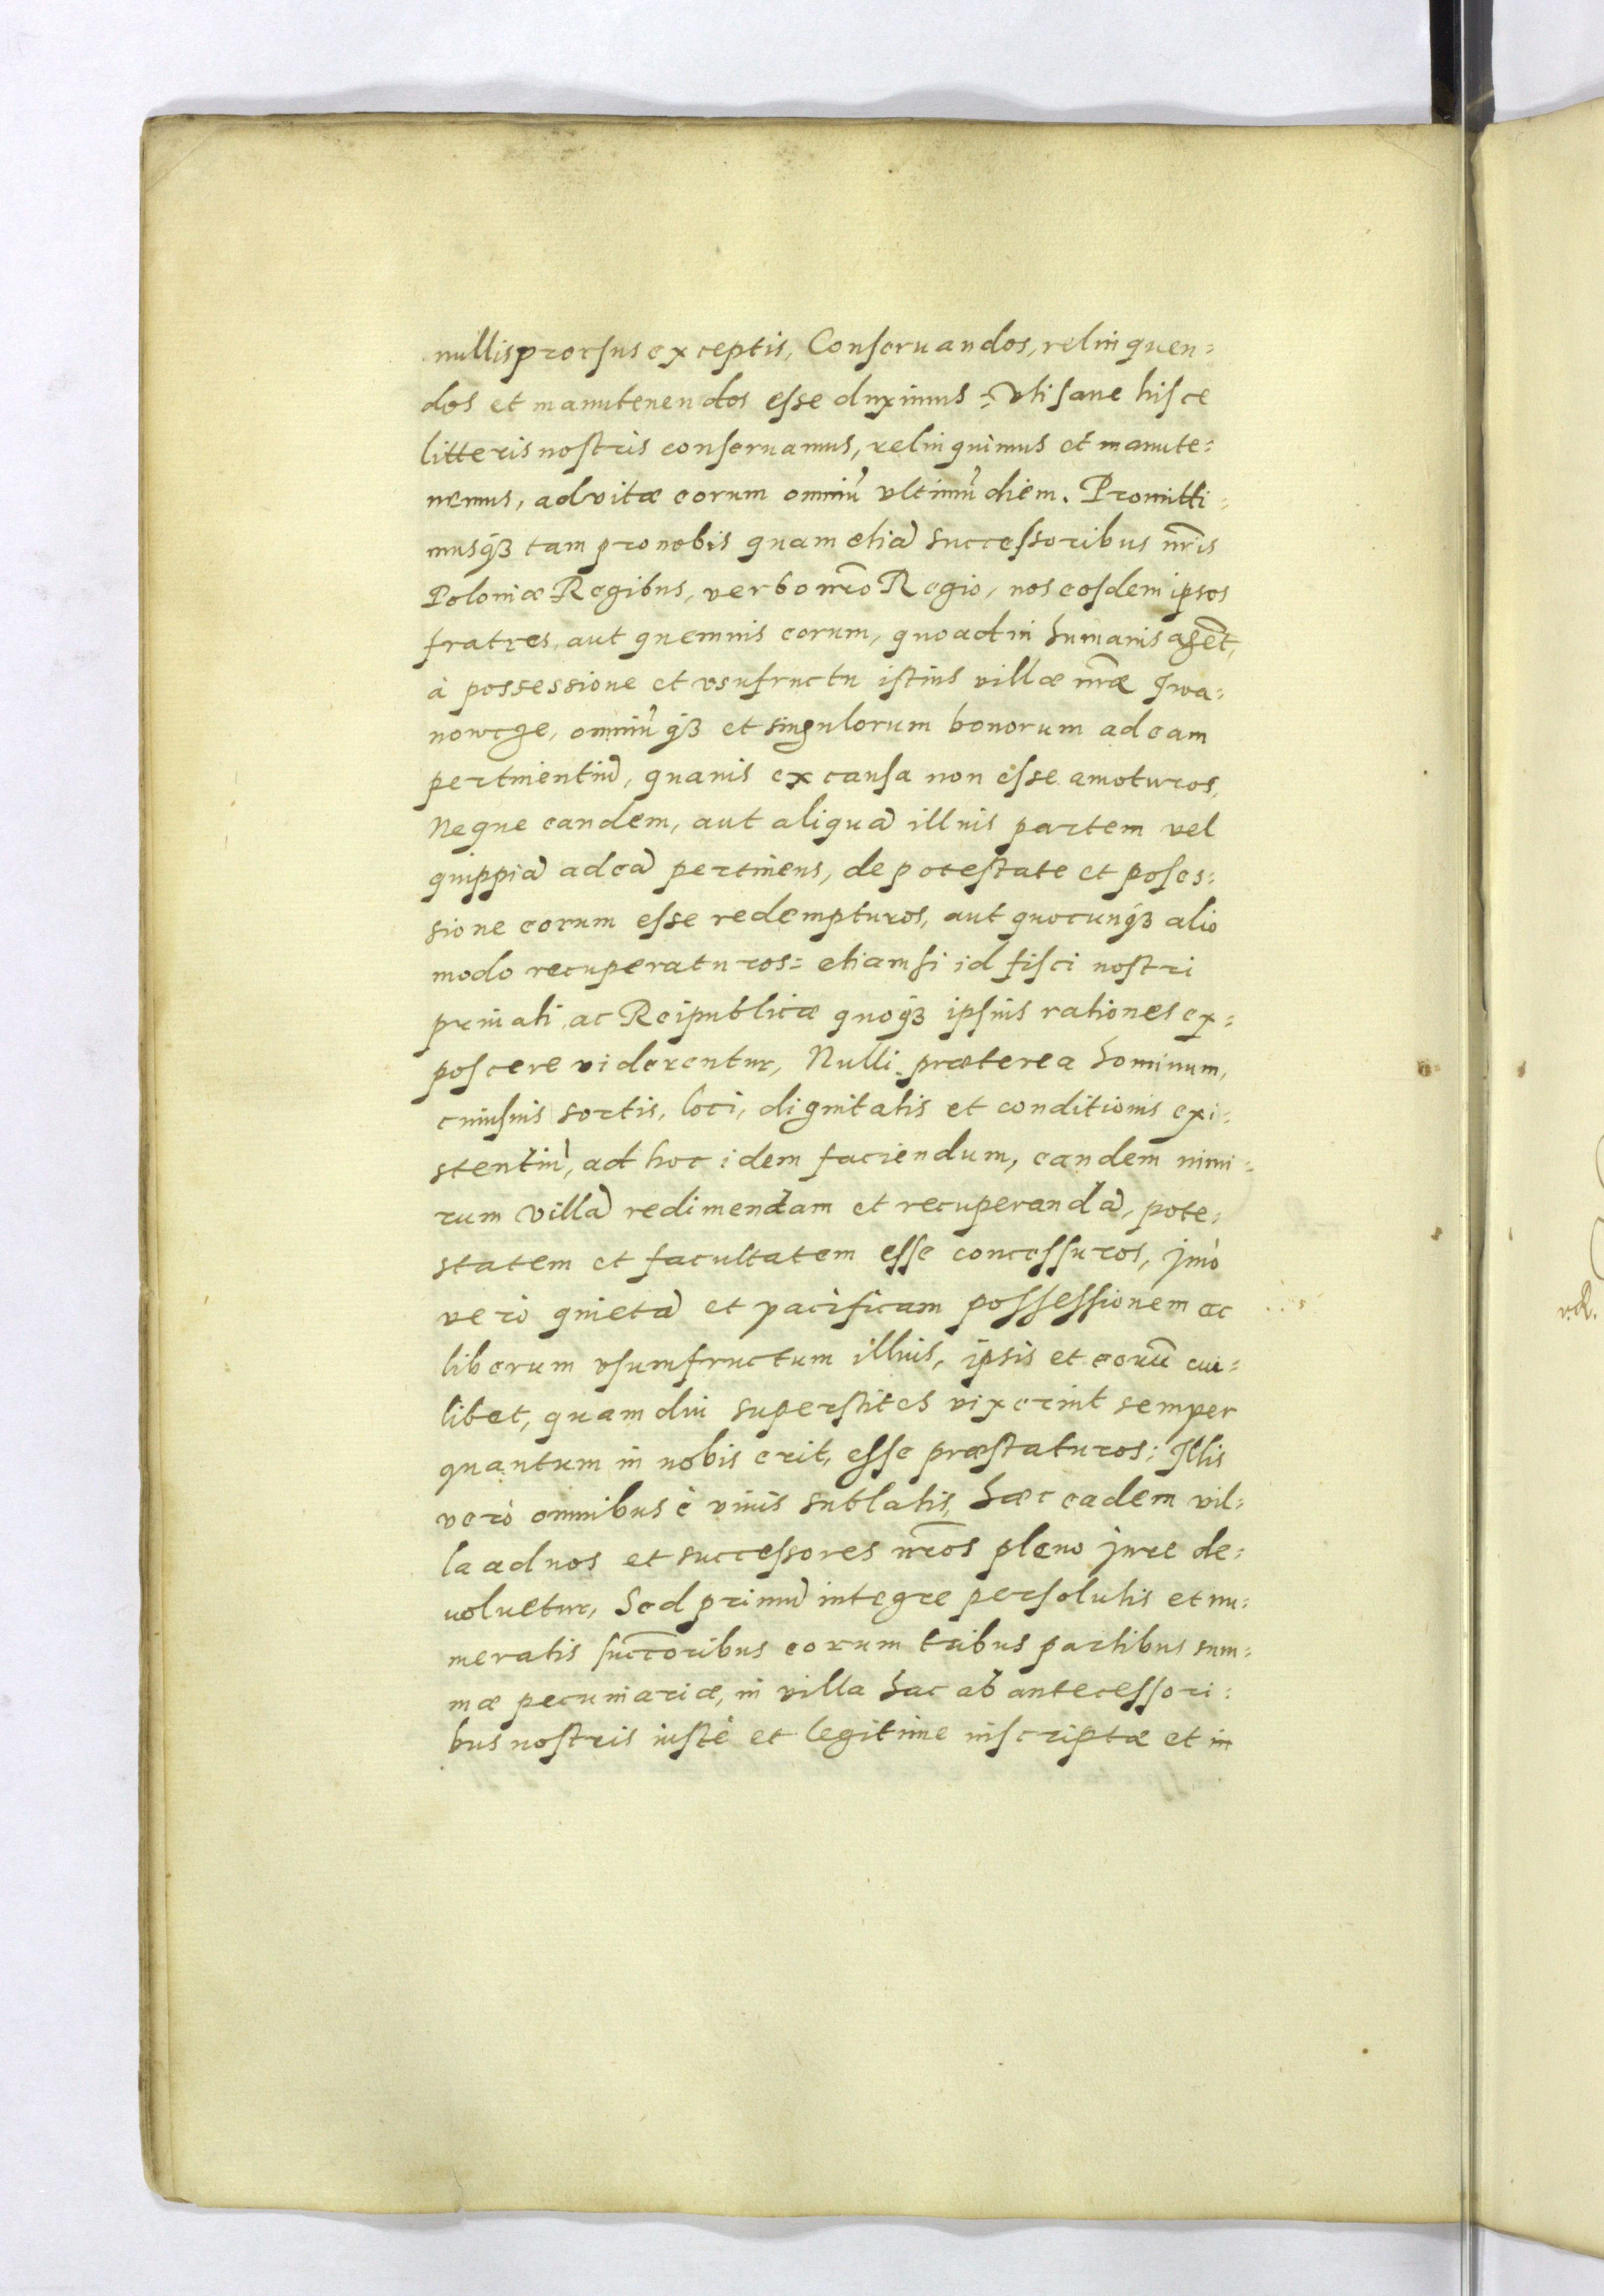 nullis prorsus exceptis, Conseruandos, relinquen=
dos et manutenendos esse duximus: Vti sane hisce
litteris nostris conseruamus, relinquimus et manute=
nemus, ad vitæ eorum omniũ vltimũ diem. Promitti=
musqꝫ tam pro nobis quam etiã successoribus nr̃is
Poloniæ Regibus, verbo nr̃o Regio, nos eosdem ipsos
fratres, aut quemuis eorum, quoad in humanis agẽt,
à possessione et vsufructu istius villæ nr̃æ Iwa=
nowcze, omniũqꝫ et singulorum bonorum ad eam
pertinentiũ, quauis ex causa non esse amoturos,
Neque eandem, aut aliquã illius partem vel
quippiã ad eã pertinens, de potestate et poses=
sione eorum esse redempturos, aut quocunqꝫ alio
modo recuperaturos: etiamsi id fisci nostri
priuati, ac Reipublicæ quoqꝫ ipsius rationes ex=
poscere viderentur, Nulli præterea hominum,
cuiusuis sortis, loci, dignitatis et conditionis exi=
stentiũ, ad hoc idem faciendum, eandem nimi=
rum villã redimendam et recuperandã, pote=
statem et facultatem esse concessuros, jmò
verò quietã et pacificam possessionem ac
liberum vsumfructum illius, ipsis et eorũ cui=
libet, quamdiu superstites vixerint semper
quantum in nobis erit, esse præstaturos: Illis
verò omnibus è viuis sublatis, hæc eadem vil=
la ad nos et successores nr̃os pleno jure de=
uoluetur, Sed primũ integre persolutis et nu=
meratis succõribus eorum tribus partibus sum=
mæ pecuniariæ, in villa hac ab antecessori=
bus nostris iustè et legitime inscriptæ et in